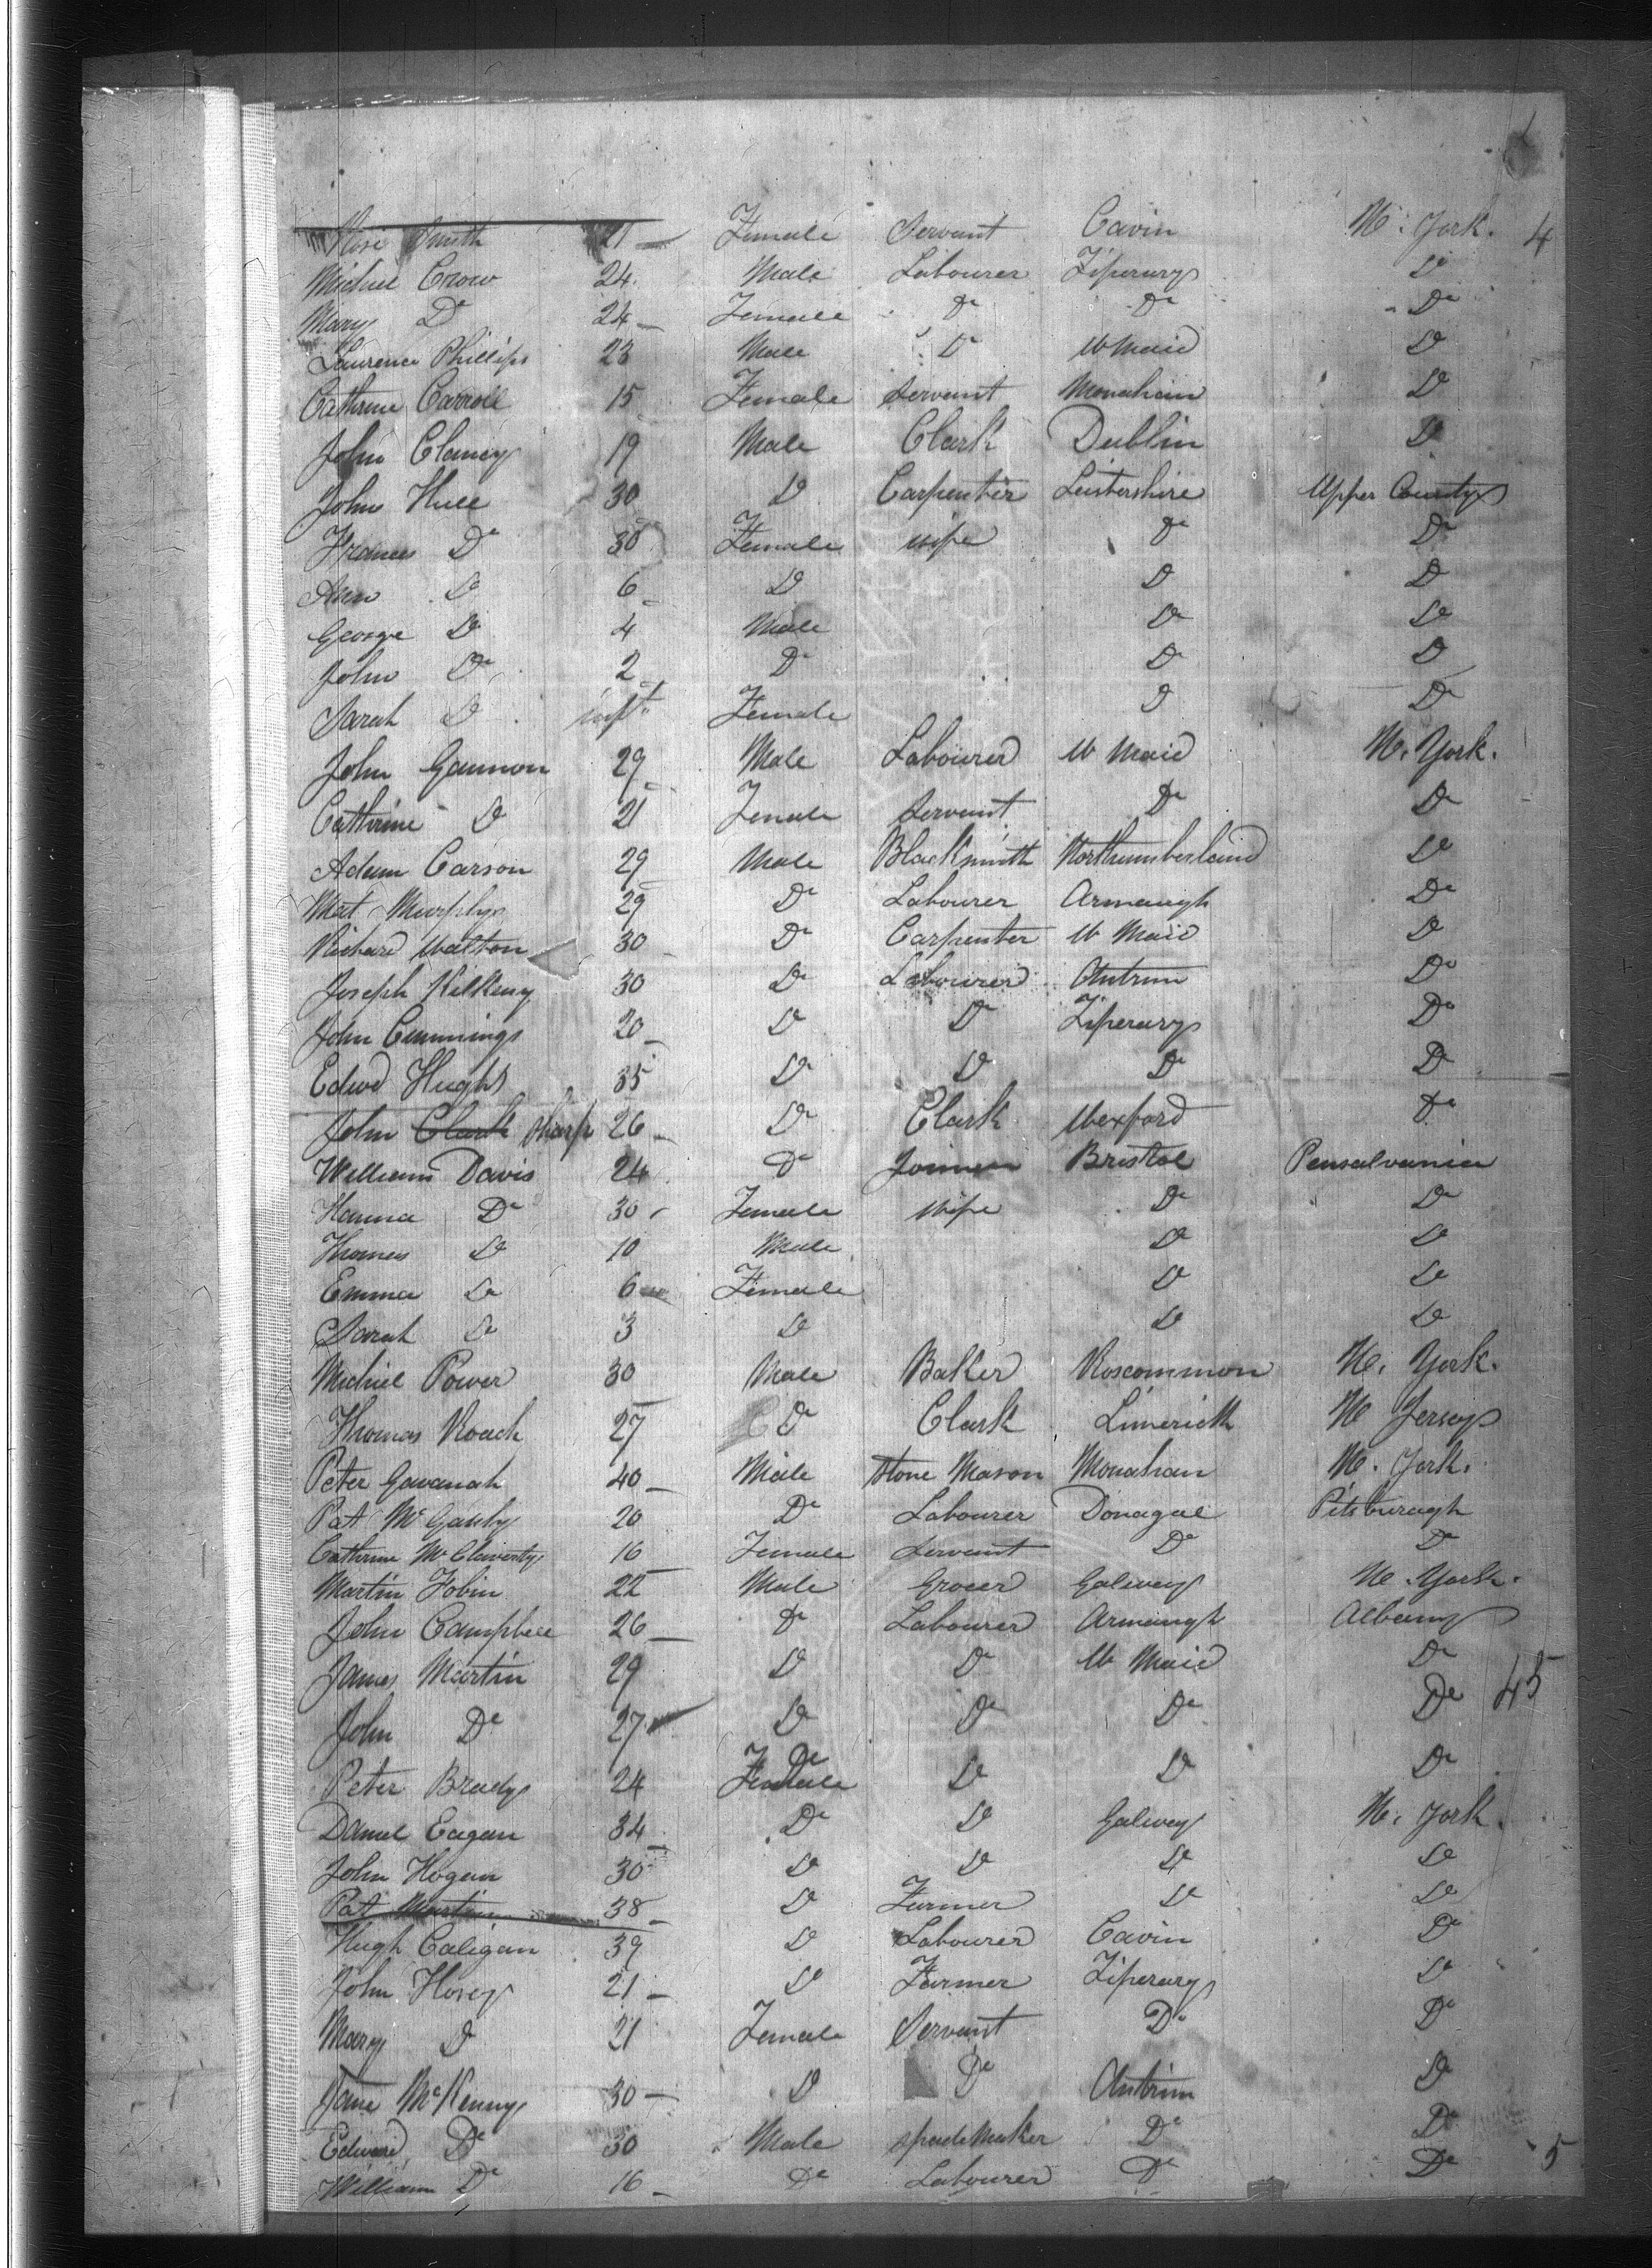 Rose Smith 21 Female Servant Cavin N. York. 4
Michael Crow 24 Male Labourer Tiperary Do
Mary Do 24 Female Do Do Do
Laurence Phillips 23 Male Do W Maid Do
Cathrine Carroll 15 Female Servant Monahain Do
John Clancy 19 Male Clark Dublin Do
John Hull 30 Do Carpenter Leistershire Upper County
Frances Do 30 Female wife Do Do
Ann Do 6 Do Do Do
George Do 4 Male Do Do
John Do 2 Do Do Do
Sarah Do inft Female Do Do
John Gannon 29 Male Labourer W Maid N. York.
Cathrine Do 21 Female Servant Do Do
Adam Carson 29 Male Blacksmith Northumberland Do
Mat Murphy 29 Do Labourer Armaugh Do
Richard Walton 30 Do Carpenter W Maid Do
Joseph Kilkeny 30 Do Labourer Antrim Do
John Cummings 20 Do Do Tiperary Do
Edwd Hughs 35 Do Do Do Do
John Clark Sharp 26 Do Clark Wexford Do
William Davis 24 Do Joiner Bristol Pensalvania
Hanna Do 30 Female wife Do Do
Thomas Do 10 Male Do Do
Emma Do 6 Female Do Do
Sarah Do 3 Do Do Do
Michiel Power 30 Male Baker Roscommon N. York.
Thomas Roach 27 Do Clark Limerick N Jersey
Peter Gavanah 40 Male Stone Mason Monahan N. York.
Pat 20 Do Labourer Donagal Pitsburagh
Cathrine McClaverty 16 Female Servant Do Do
Martin Tobin 22 Male Grocer Galway N. York.
John Campbell 26 Do Labourer Armaugh Albany
James Martin 29 Do Do W Maid Do
John Do 27 Do Do Do Do 45
Peter Brady 24 Female Do Do Do Do
Daniel Eagan 34 Do Do Galway N. York.
John Hogan 30 Do Do Do Do
Pat Martin 38 Do Farmer Do Do
Hugh Caligan 39 Do Labourer Cavin Do
John Hosey 21 Do Farmer Tiperary Do
Mary Do 21 Female Servant Do Do
Jane McKenny 30 Do Do Antrim Do
Edward Do 30 Male Spade Maker Do Do
William Do 16 Do Labourer Do Do 5